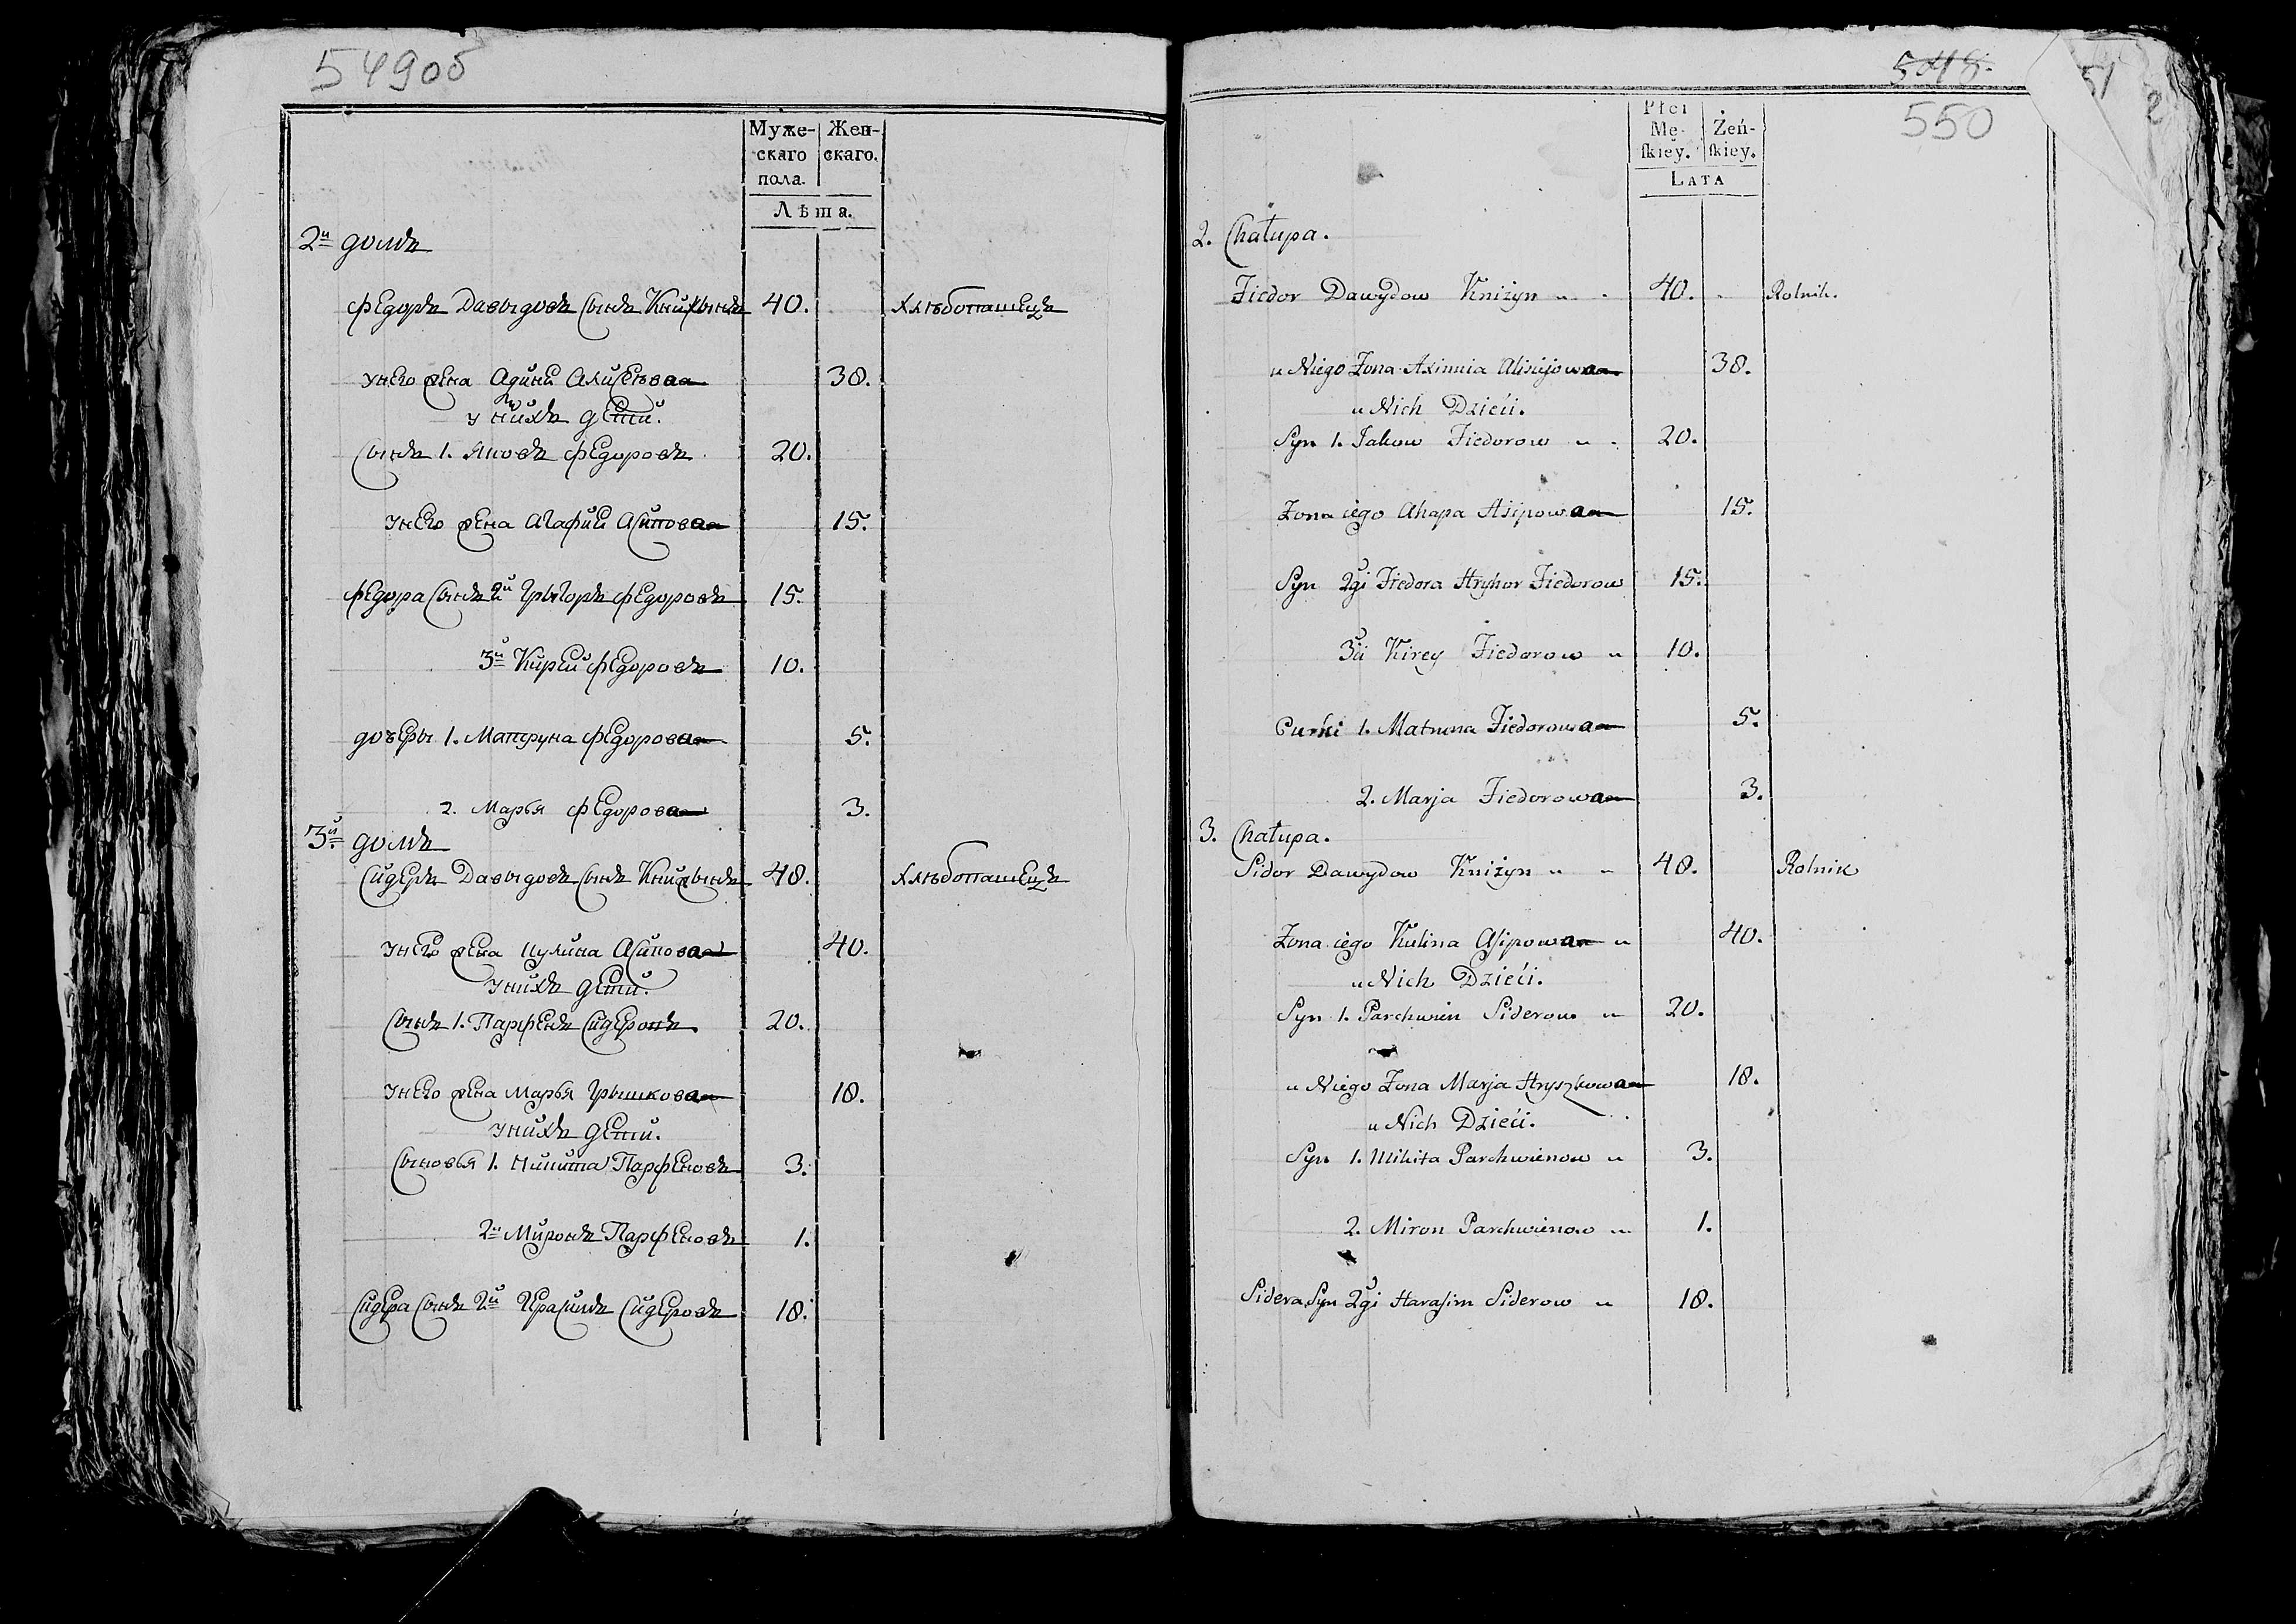 549об
Муже-
скаго
пола.
Жен-
скаго.
Лѣта.
2й домъ
Федоръ Давыдовъ сынъ Книжынъ 40. Хлѣбопашецъ
у него жена 38.
у нихъ дети.
Сынъ 1. Яковъ Федоровъ 20.
у него жена Агафия Асипова 15.
Федора сынъ 2й Грыгоръ Федоровъ 15.
3й Кирей Федоровъ 10.
дочеры 1. Матруна Федорова 5.
2. Марья Федорова 3.
3й домъ
Сидеръ Давыдовъ сынъ Книжынъ 48. Хлѣбопашецъ
у него жена Кулина Асипова 40.
у нихъ дети.
Сынъ 1. Парфенъ Сидеровъ 20.
у него жена Марья Грышкова 18.
у нихъ дети.
Сыновья 1. Никита Парфеновъ 3.
2й Миронъ Парфеновъ 1.
Сидера сынъ 2й Герасимъ Сидеровъ 18.
548.
550
51
2
Płci
Mę-
ſkiey.
Żeń-
ſkiey.
LATA
2. Chałupa.
Fiedor Dawydow Kniżyn 40. Rolnik.
u Niego Żona Axinnia 38.
u Nich Dzieći.
Syn 1. Jakow Fiedorow 20.
Żona iego Ahapa Asipowa 15.
Syn 2gi Fiedora Hryhor Fiedorow 15.
3ći Kirey Fiedorow 10.
Curki 1. Matruna Fiedorowa 5.
2. Marja Fiedorowa 3.
3. Chałupa.
Sidor Dawydow Kniżyn 48. Rolnik
Żona iego Kulina Aſipowa 40.
u Nich Dzieći.
Syn 1. Parchwien Siderow 20.
u Niego Żona Marja Hryszkowa 18.
u Nich Dzieći.
Syn 1. Mikita Parchwienow 3.
2. Miron Parchwienow 1.
Sidera Syn 2gi Haraſim Siderow 18.